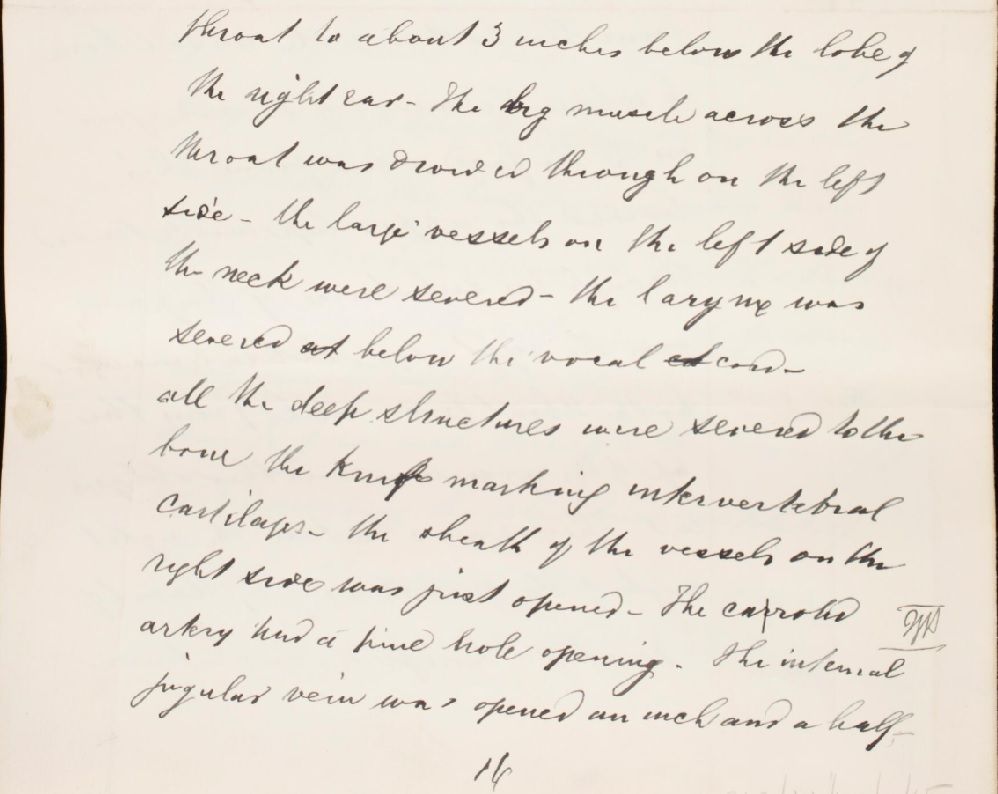 throat to about 3 inches below the lobe of
the right ear - The big muscle across the
throat was divided through on the left
side - the large vessels on the left side of
the neck were severed - the larynx was
severed below the vocal cord -
all the deep structures were severed to the
bone the knife marking intervertebral
cartilages - the sheath of the vessels on the
right side was just opened - The carrotid
artery had a pine hole opening - The internal
jugular vein was opened an inch and a half -
16